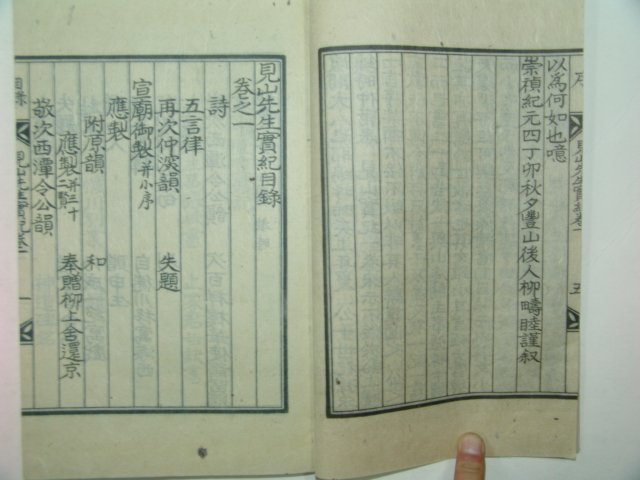 以爲何如也噫
崇禎紀元四丁卯秋夕豐山後人柳疇睦謹叙
序
見山先生實紀卷一
五
見山先生實紀目錄
卷之一
詩
五言律
再次仲深韻 失題
宣廟御製并小序
應製
附原韻 和
應製并三十二賢 奉贈柳上舍還京
敬次西潭令公韻
目錄
見山先生實紀卷一
一